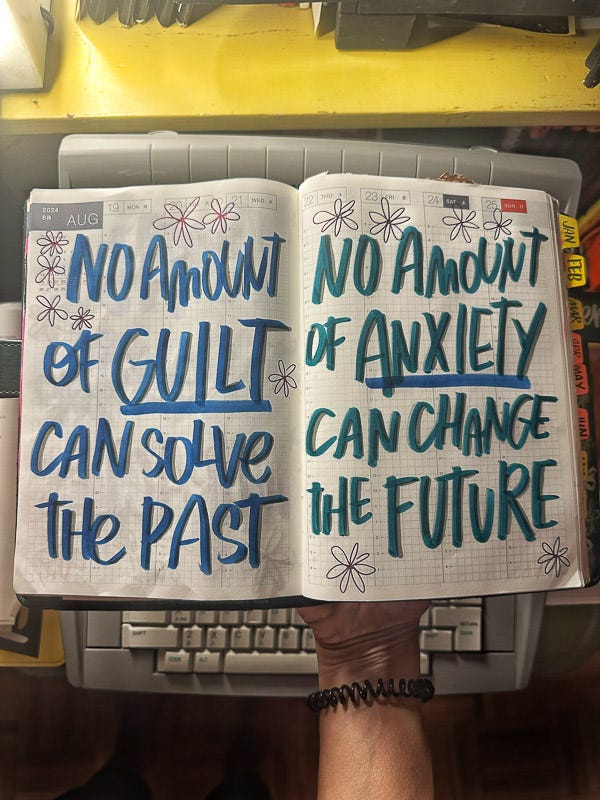 2024
8N AUG 19 MON 21 WED
NO AMOUNT
OF GUILT
CAN SOLVE
THE PAST
22 THU 23 FRI 24 SAT 25 SUN
NO AMOUNT
OF ANXIETY
CAN CHANGE
THE FUTURE
JAN
FEB
MAR
APR
MAY
JUN
SHIFT Z X C V
CODE ALT
RETURN